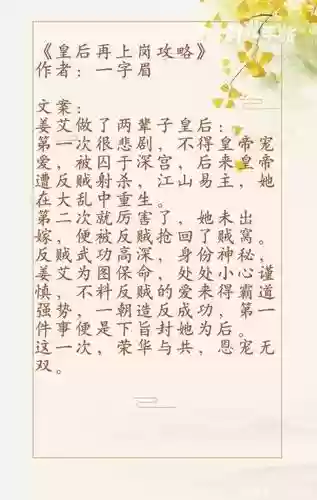 《皇后再上岗攻略》
作者：一字眉
文案：
姜艾做了两辈子皇后：
第一次很悲剧，不得皇帝宠
爱，被囚于深宫，后来皇帝
遭反贼射杀，江山易主，她
在大乱中重生。
第二次就厉害了，她未出
嫁，便被反贼抢回了贼窝。
反贼武功高深，身份神秘，
姜艾为图保命，处处小心谨
慎，不料反贼的爱来得霸道
强势，一朝造反成功，第一
件事便是下旨封她为后。
这一次，荣华与共，恩宠无
双。